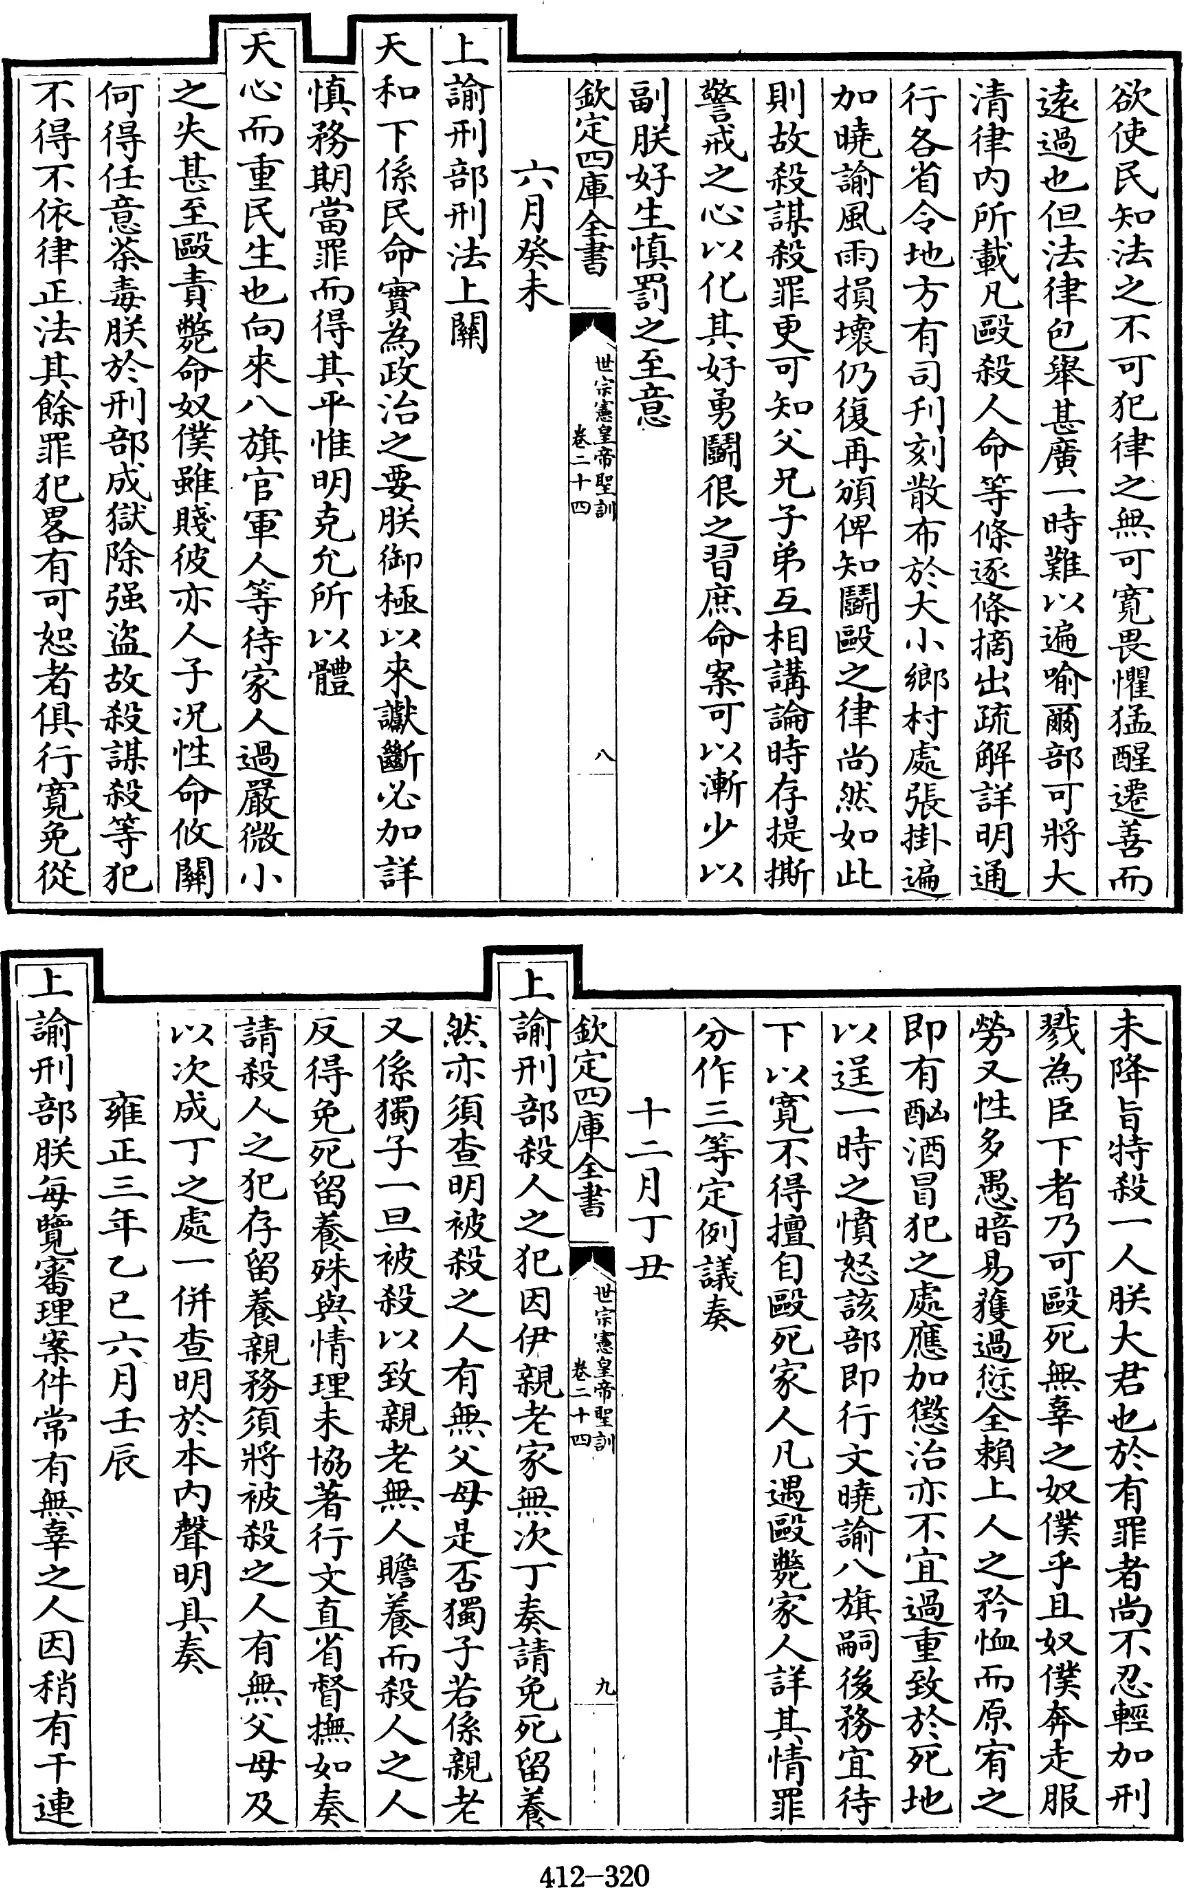 欲使民知法之不可犯律之無可寛畏懼猛醒遷善而
遠過也但法律包舉甚廣一時難以遍喻爾部可將大
清律内所載凡毆殺人命等條逐條摘出疏解詳明通
行各省令地方有司刋刻散布於大小鄉村處張掛遍
加曉諭風雨損壞仍復再頒俾知鬭毆之律尚然如此
則故殺謀殺罪更可知父兄子弟互相講論時存提撕
警戒之心以化其好勇鬭很之習庶命案可以漸少以
副朕好生慎罰之至意
欽定四庫全書
世宗憲皇帝聖訓
卷二十四
八
六月癸未
上諭刑部刑法上關
天和下係民命實為政治之要朕御極以來讞斷必加詳
慎務期當罪而得其平惟明克允所以體
天心而重民生也向來八旗官軍人等待家人過嚴微小
之失甚至毆責斃命奴僕雖賤彼亦人子况性命攸關
何得任意荼毒朕於刑部成獄除强盜故殺謀殺等犯
不得不依律正法其餘罪犯畧有可恕者俱行寛免從
未降旨特殺一人朕大君也於有罪者尚不忍輕加刑
戮為臣下者乃可毆死無辜之奴僕乎且奴僕奔走服
勞又性多愚暗易獲過愆全賴上人之矜恤而原宥之
即有酗酒冒犯之處應加懲治亦不宜過重致於死地
以逞一時之憤怒該部即行文曉諭八旗嗣後務宜待
下以寛不得擅自毆死家人凡遇毆斃家人詳其情罪
分作三等定例議奏
十二月丁丑
欽定四庫全書
世宗憲皇帝聖訓
卷二十四
九
上諭刑部殺人之犯因伊親老家無次丁奏請免死留養
然亦須查明被殺之人有無父母是否獨子若係親老
又係獨子一旦被殺以致親老無人贍養而殺人之人
反得免死留養殊與情理未協著行文直省督撫如奏
請殺人之犯存留養親務須將被殺之人有無父母及
以次成丁之處一併查明於本内聲明具奏
雍正三年乙巳六月壬辰
上諭刑部朕每覽審理案件常有無辜之人因稍有干連
412-320